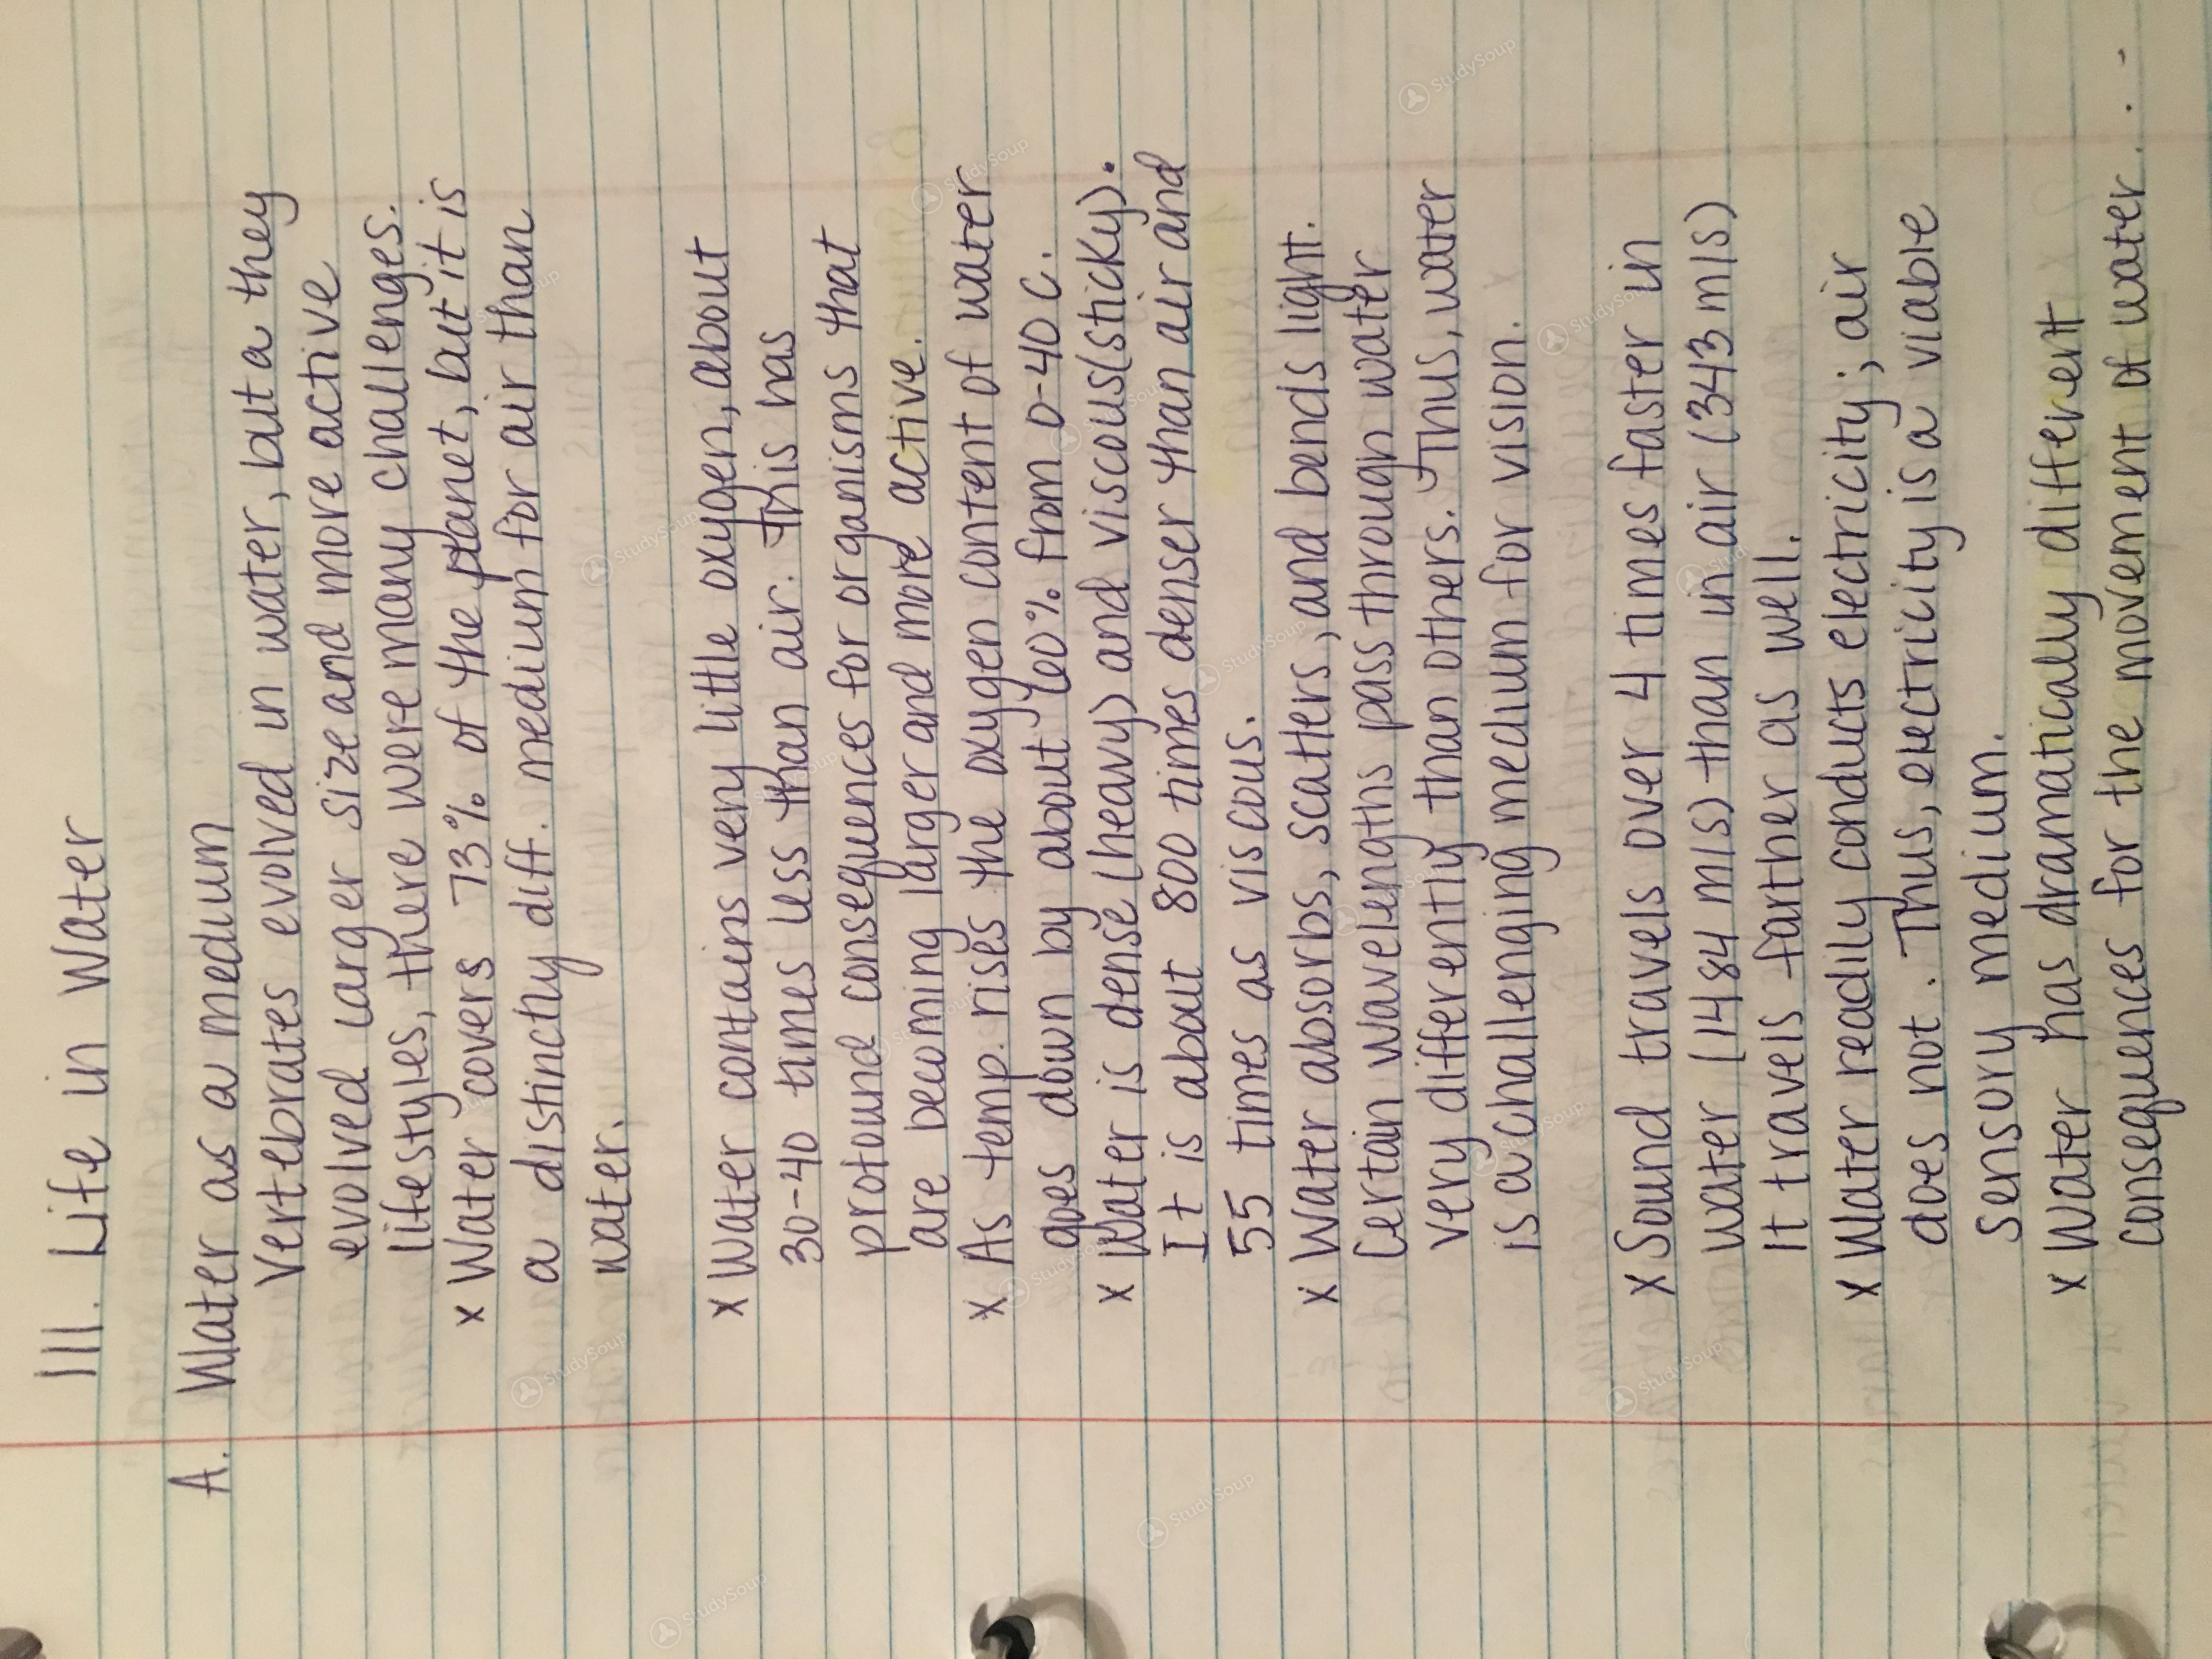 III. Life in Water
A. Water as a medium
Vertebrates evolved in water, but a they
evolved larger size and more active
lifestyles, there were many challenges.
x Water covers 73% of the planet, but it is
a distinctly diff. medium for air than
water.
x Water contains very little oxygen, about
30-40 times less than air. This has
profound consequences for organisms that
are becoming larger and more active.
x As temp. rises the oxygen content of water
goes down by about 60% from 0-40 C.
x Water is dense (heavy) and viscous (sticky).
It is about 800 times denser than air and
55 times as viscous.
x Water absorbs, scatters, and bends light.
Certain wavelengths pass through water
very differently than others. Thus, water
is a challenging medium for vision.
x Sound travels over 4 times faster in
water (1484 m/s) than in air (343 m/s)
It travels farther as well.
x Water readily conducts electricity; air
does not. Thus, electricity is a viable
sensory medium.
x Water has dramatically different
consequences for the movement of water...
StudySoup